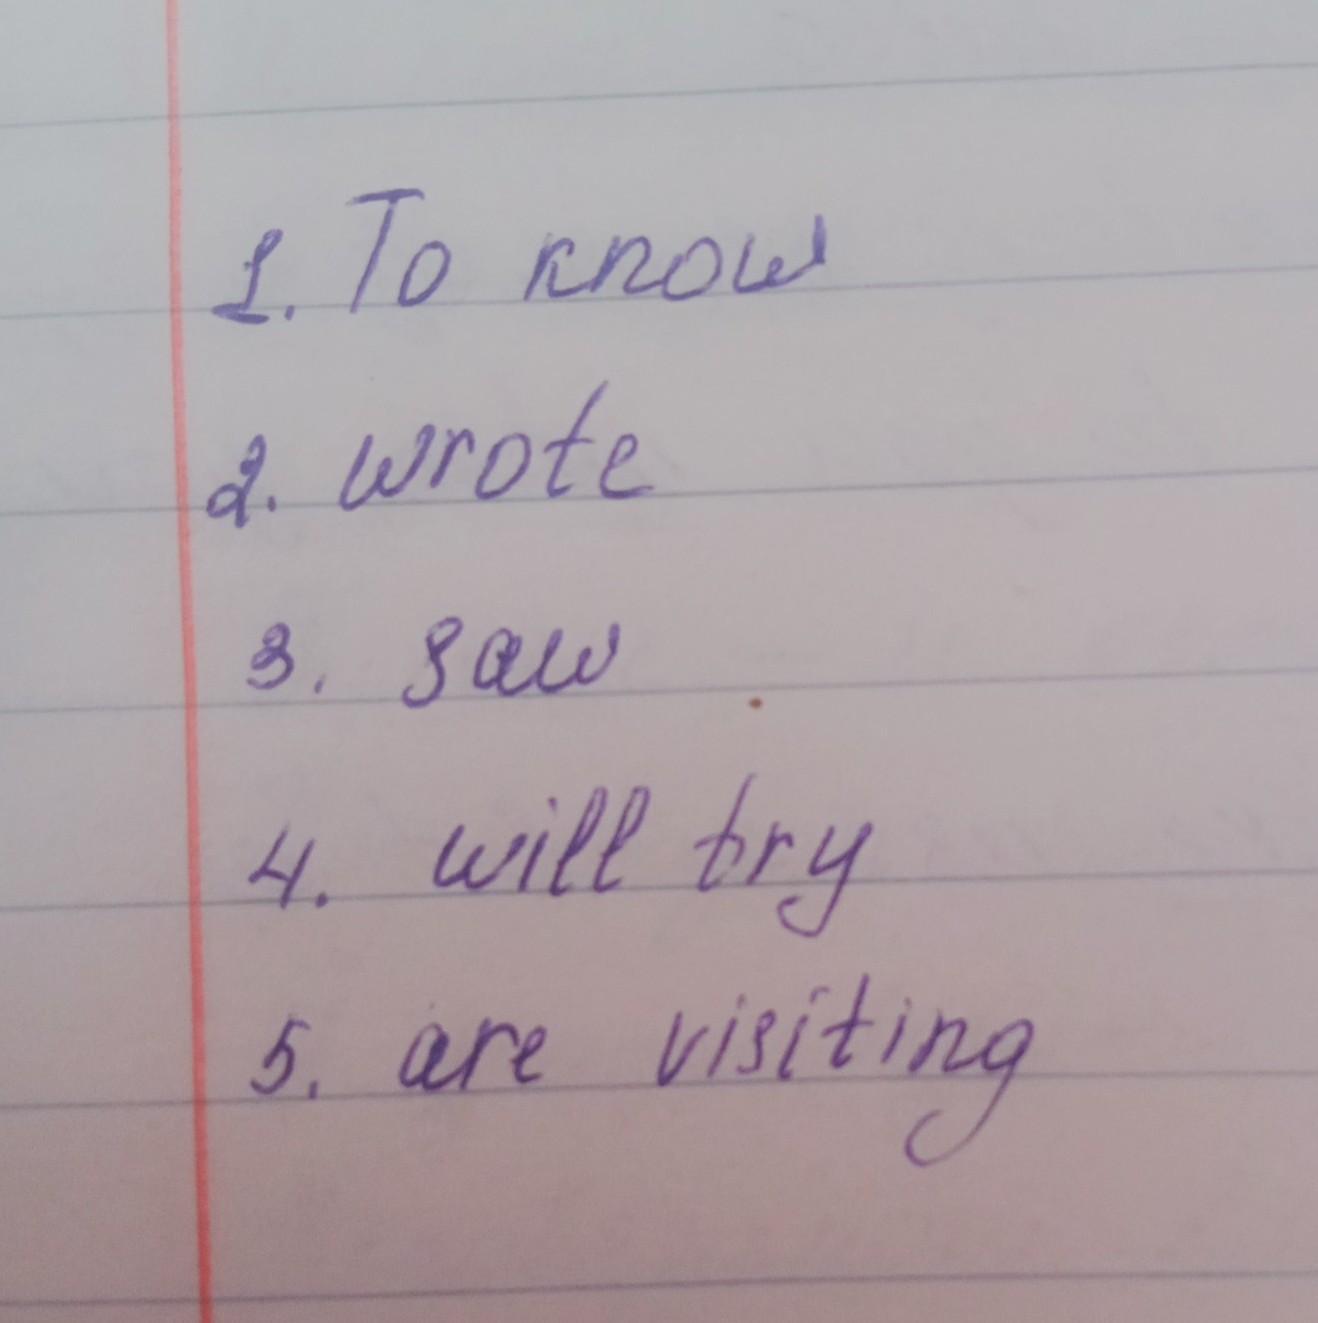 1. To know
2. wrote
3. saw
4. will try
5. are visiting